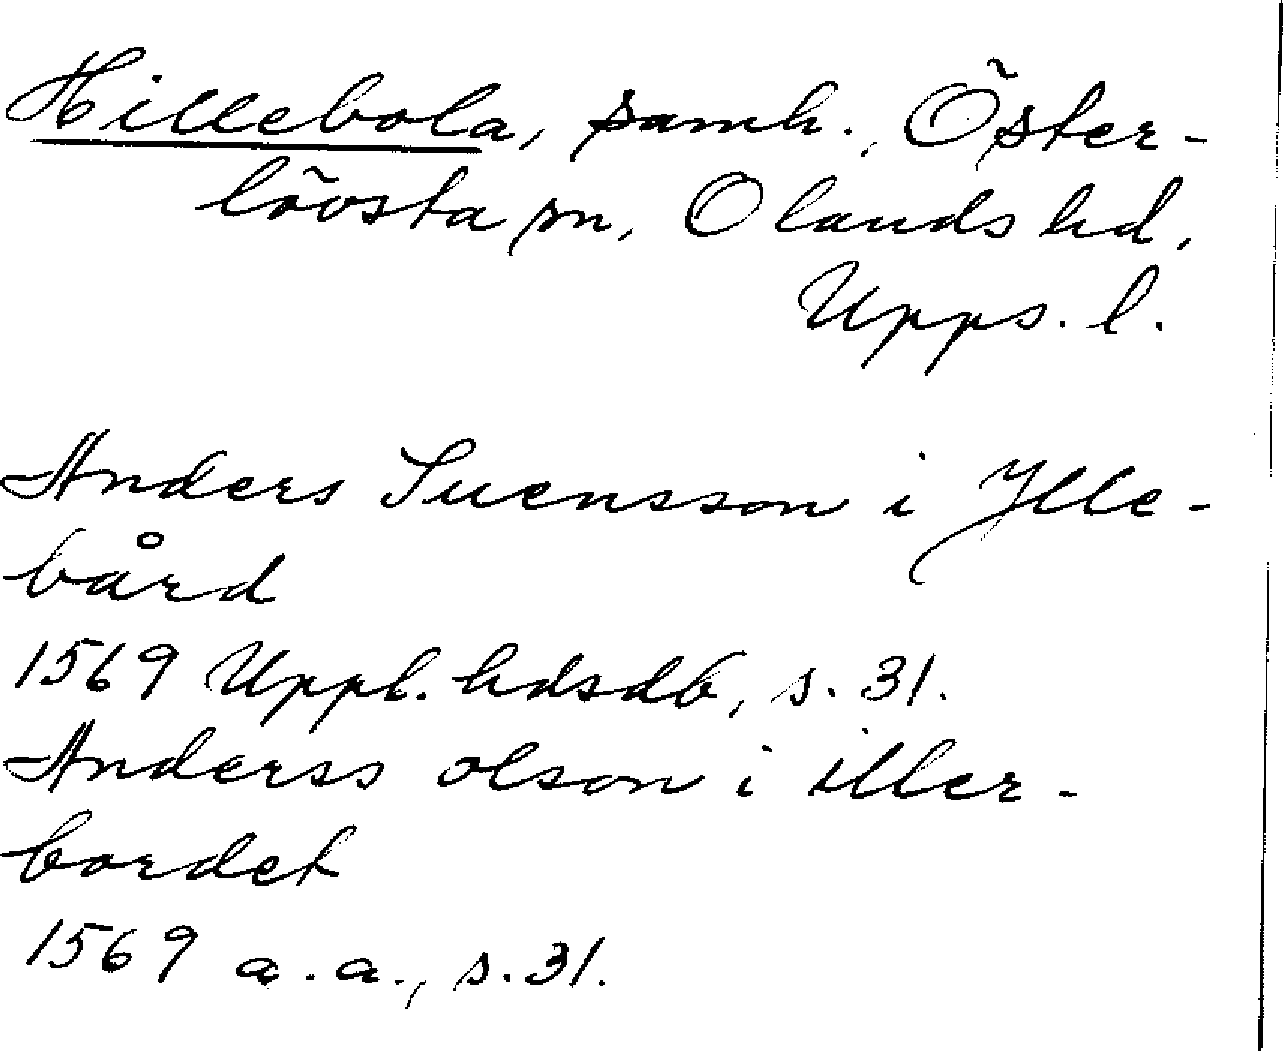 Hillebola, samh., Öster-
lövsta sn, Olands hd,
Upps. l.
Anders Suensson i Ylle-
bård
1569 Uppl. hdsdb, s. 31.
Anderss olson i iller-
bordet
1569 a.a., s. 31.